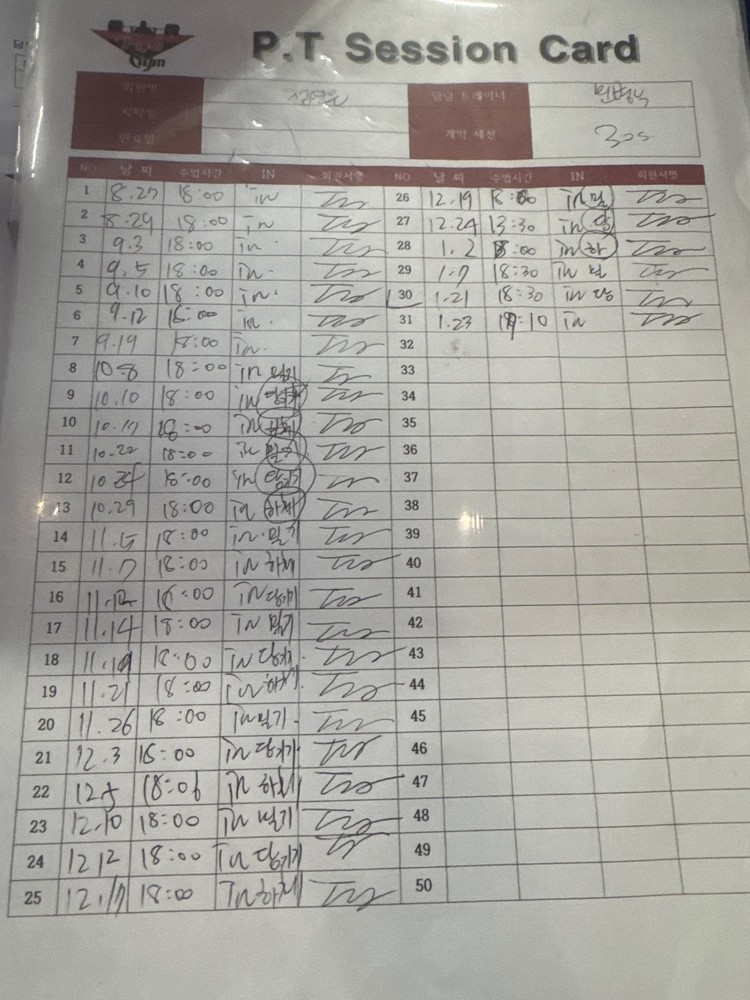 Gym
P.T Session Card
회원명 담당 트레이너
시작일
만료일 계약 세션
NO 날 짜 수업시간 IN 회원서명 NO 날 짜 수업시간 IN 회원서명
1 8.27 18:00 in 26 12.19 18:00 in 밀
2 8.29 18:00 in 27 12.24 13:30 in 당
3 9.3 18:00 in 28 1.2 18:00 in 하
4 9.5 18:00 in 29 1.7 18:30 in
5 9.10 18:00 in 30 1.21 18:30 in 당
6 9.12 18:00 in 31 1.23 10 in
7 9.19 18:00 in 32
8 10.8 18:00 in 밀기 33
9 10.10 18:00 in 34
10 10.17 18:00 in 하체 35
11 10.22 18:00 in 밀기 36
12 10.24 18:00 in 당기기 37
13 10.29 18:00 in 하체 38
14 11.5 18:00 in 밀기 39
15 11.7 18:00 in 하체 40
16 11.12 18:00 in 당기기 41
17 11.14 18:00 in 밀기 42
18 11.19 18:00 in 당기기 43
19 11.21 18:00 in 하체 44
20 11.26 18:00 in 밀기 45
21 12.3 18:00 in 당기기 46
22 12.5 18:06 in 하체 47
23 12.10 18:00 in 밀기 48
24 12.12 18:00 in 당기기 49
25 12.17 18:00 in 하체 50